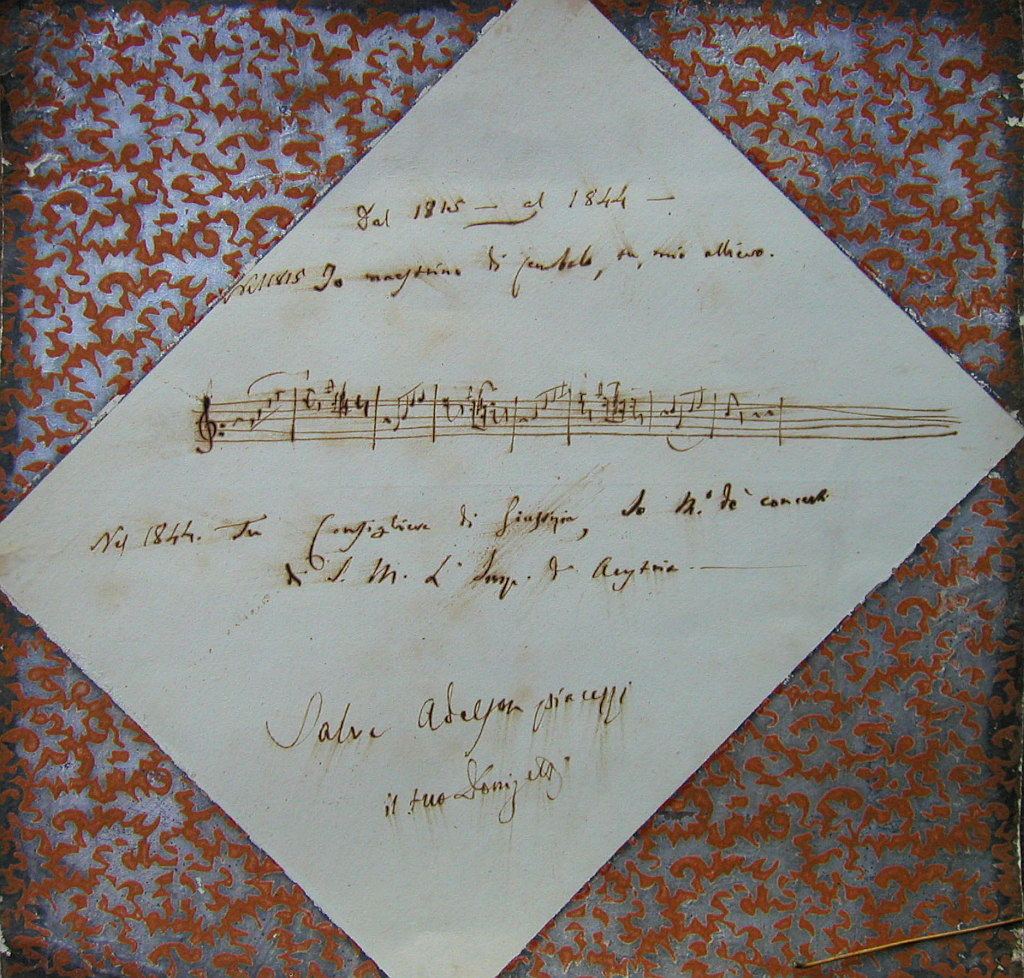 Dal 1815 — al 1844 —
Nel 1815 Io maestrino di cembalo, tu, mio allievo.
Nel 1844. Tu Consigliere di Giustizia, Io M.º de' concerti
di S. M. L' Imp. d' Austria.
Salve Adelson piacezzi
il tuo Donizetti